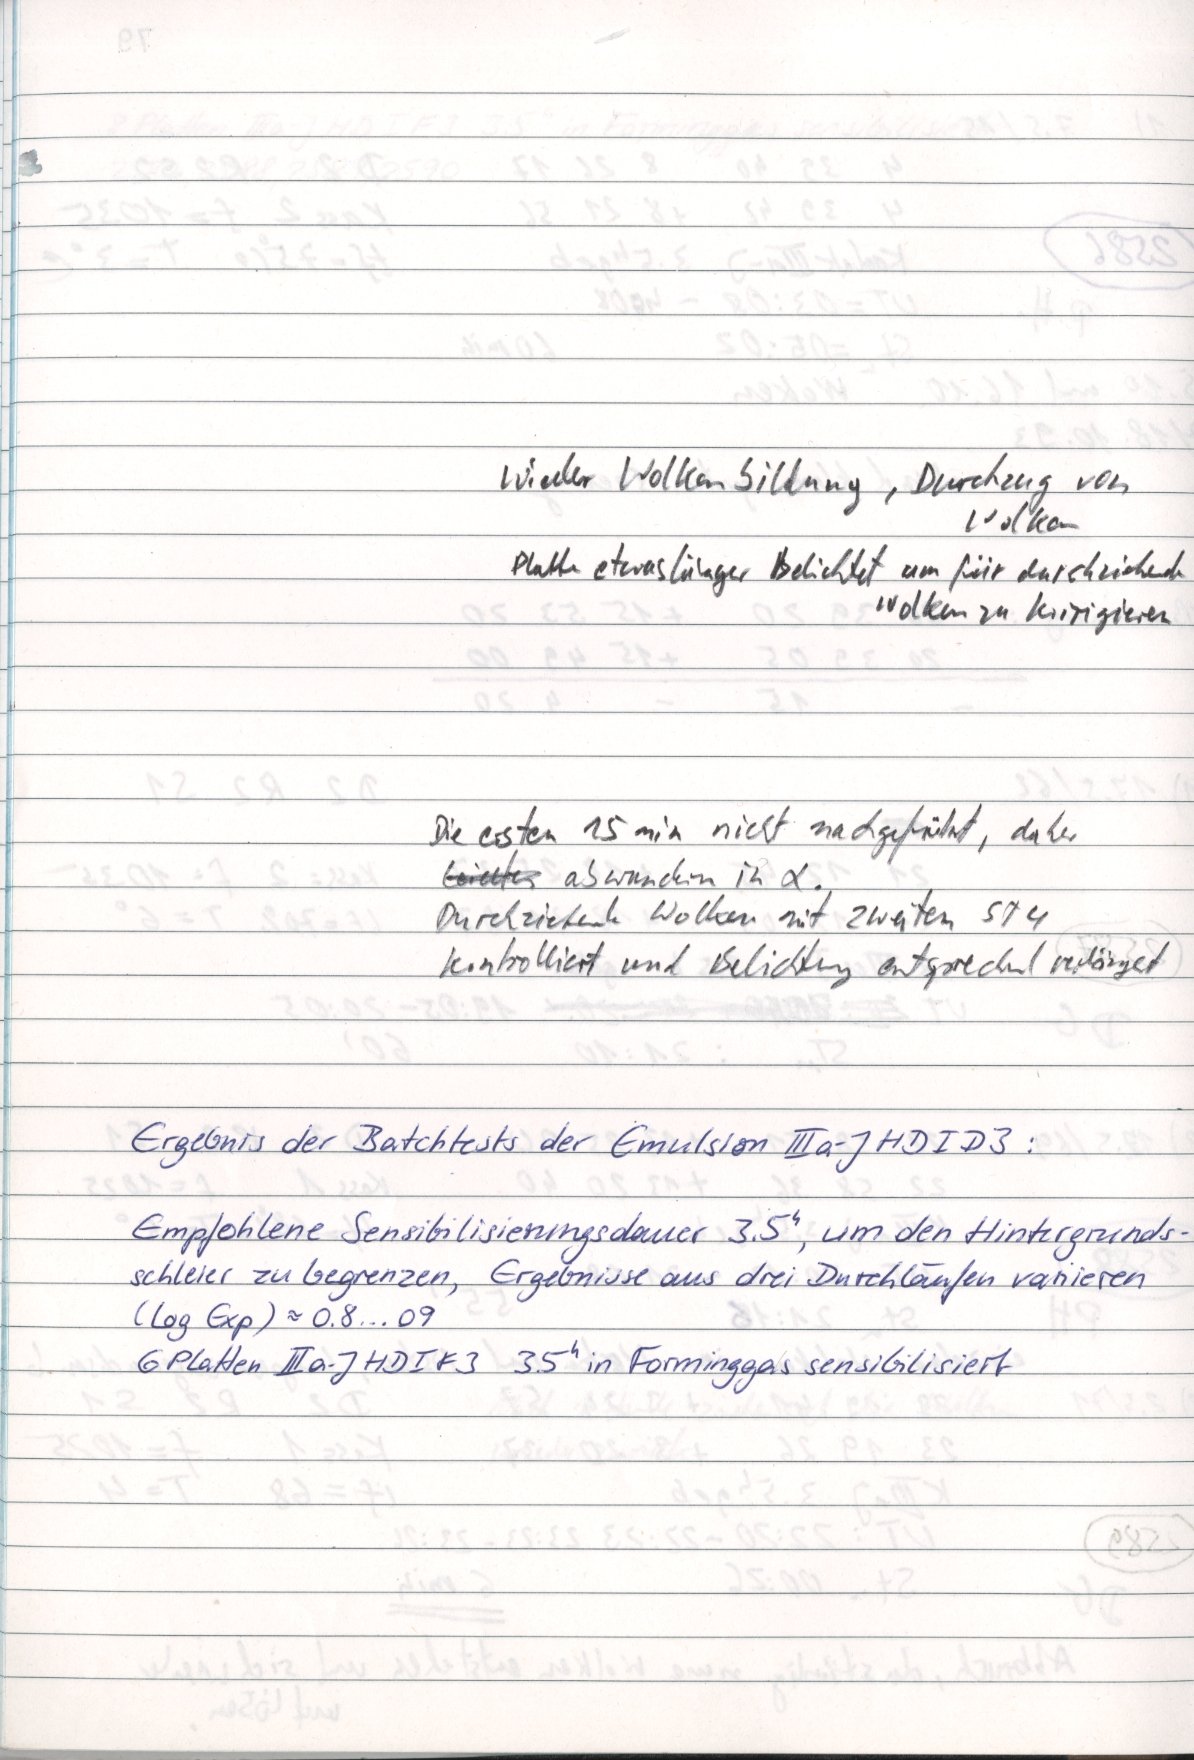 Wieder Wolkenbildung, Durchzug von
Wolken
Platte etwas länger Belichtet um für durchziehende
Wolken zu korrigieren
Die ersten 15 min nicht nachgeführt, daher
abwandern in α.
Durchziehende Wolken mit zweiten ST4
kontrolliert und Belichtung entsprechend verlängert
Ergebnis der Batchtests der Emulsion IIIa-J HDID3:
Empfohlene Sensibilisierungsdauer 3.5ʰ, um den Hintergrunds-
schleier zu begrenzen, Ergebnisse aus drei Durchläufen variieren
(log Exp) ≈ 0.8...09
6 Platten IIIa-J HDIF3 35ʰ in Forminggas sensibilisiert